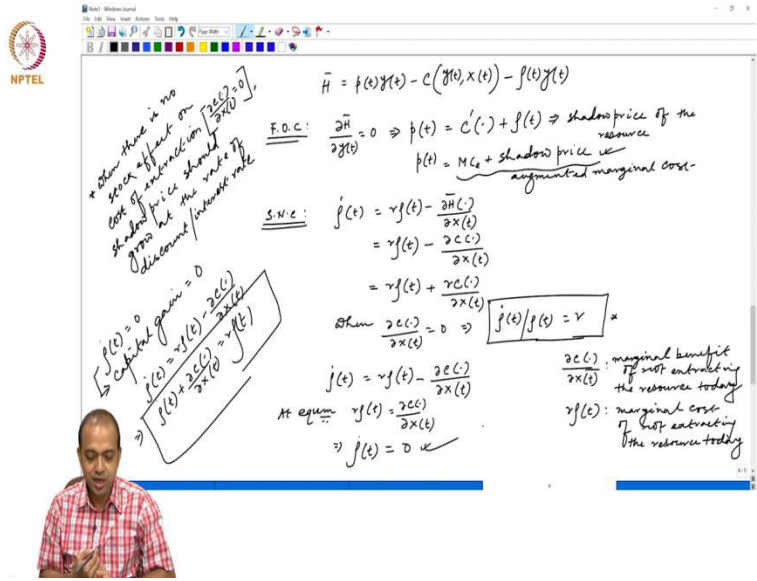 Note1 - Windows Journal
File Edit View Insert Actions Tools Help
NPTEL
H̄ = p(t)y(t) - c(y(t), x(t)) - ρ(t)y(t)
F.O.C: ∂H̄/∂y(t) = 0 ⇒ p(t) = c'(·) + ρ(t) ⇒ shadow price of the
resource
p(t) = MCe + shadow price ✓
augmented marginal cost-
S.N.C: ρ̇(t) = rρ(t) - ∂H̄(·)/∂x(t)
= rρ(t) - ∂c(·)/∂x(t)
= rρ(t) + rc(·)/∂x(t)
When ∂c(·)/∂x(t) = 0 ⇒ ρ̇(t)/ρ(t) = r *
ρ̇(t) = rρ(t) - ∂c(·)/∂x(t)
At equm rρ(t) = ∂c(·)/∂x(t)
⇒ ρ̇(t) = 0 ✓
∂c(·)/∂x(t) : marginal benefit
of not extracting
the resource today
rρ(t): marginal cost
of not extracting
the resource today
* When there is no
stock effect on
cost of extraction [∂c(·)/∂x(t) = 0],
shadow price should
grow at the rate of
discount/interest rate
[ρ̇(t) = 0
⇒ capital gain = 0
ρ̇(t) = rρ(t) - ∂c(·)/∂x(t)
⇒ ρ̇(t) + ∂c(·)/∂x(t) = rρ(t)